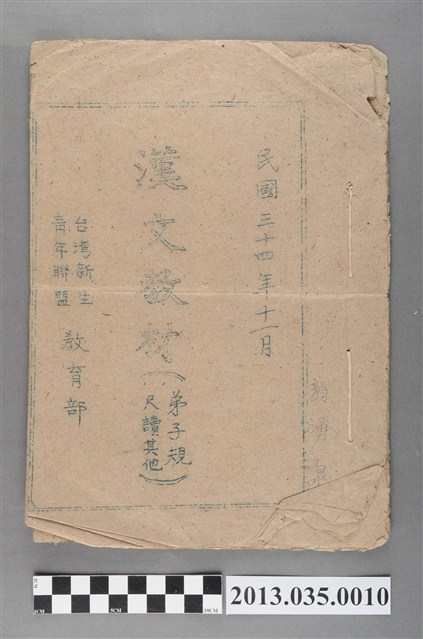 民國三十四年十一月
漢文教材（弟子規
尺讀其他）
台湾新生
青年聯盟
教育部
2CM
0CM
5CM
10CM
2013.035.0010